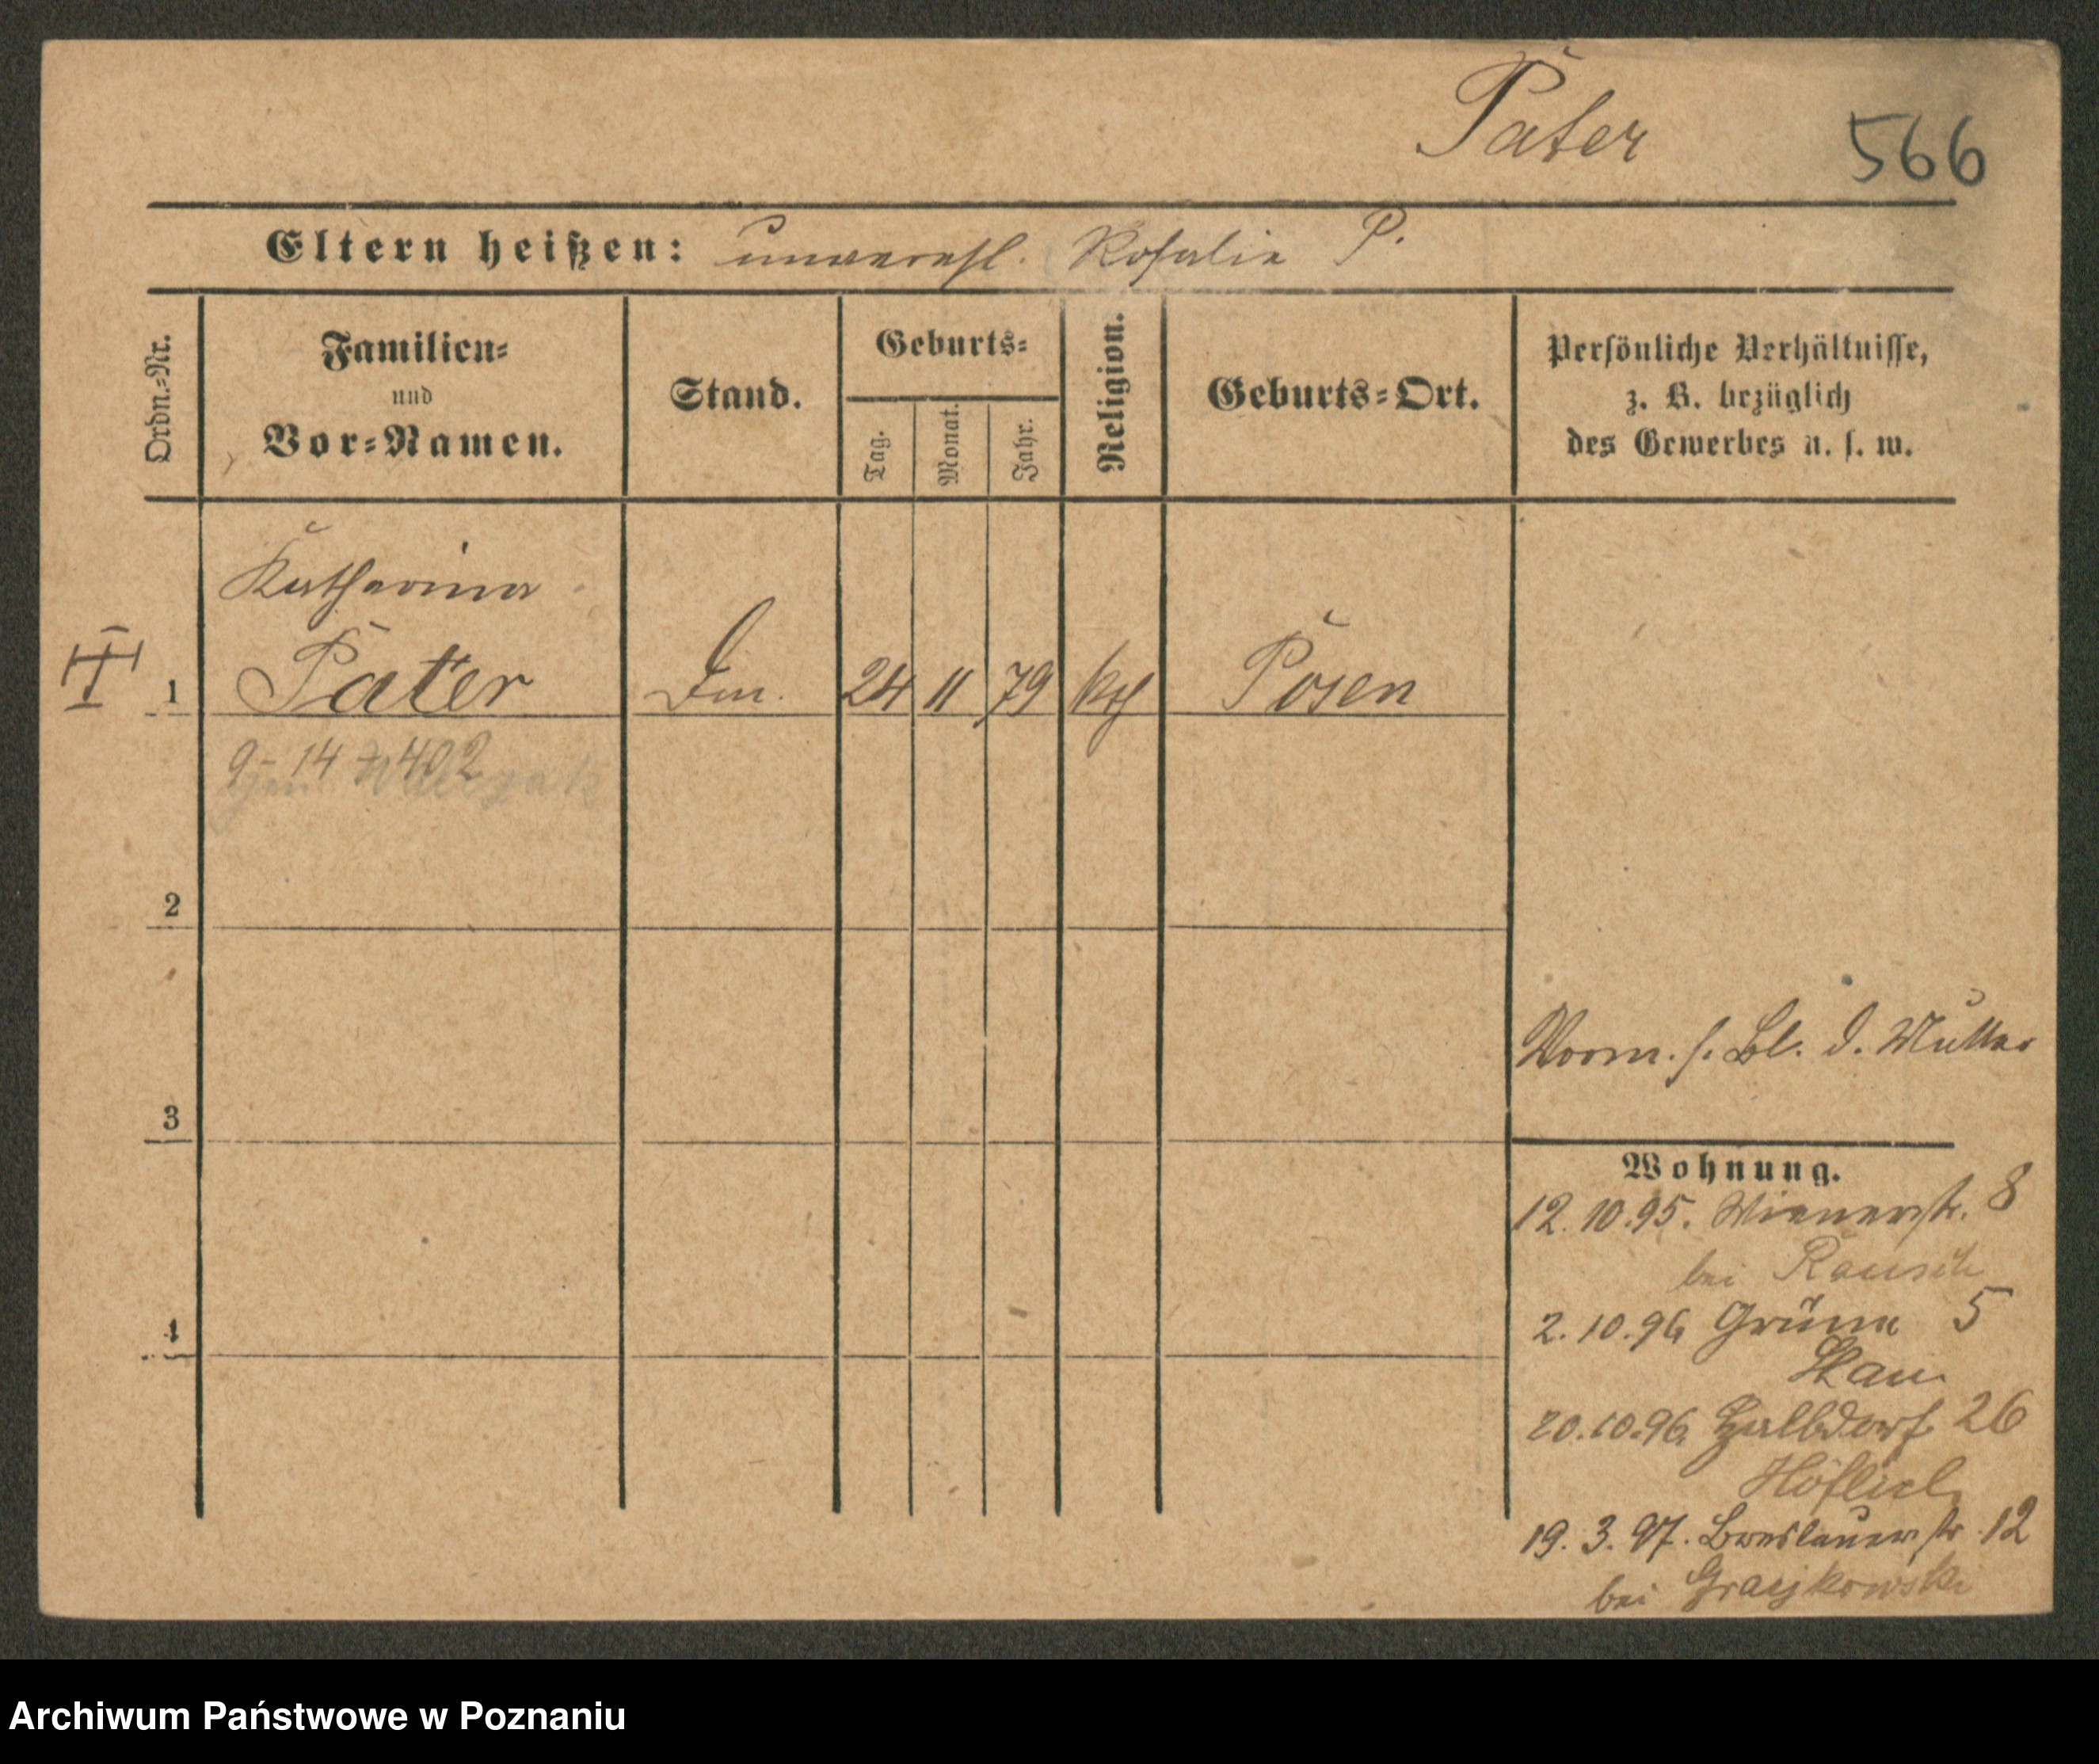 Pater 566
Eltern heißen: unverehl. Rosalie P.
Ordn.=Nr.
Familien=
und
Vor=Namen.
Stand.
Geburts=
Tag.
Monat.
Jahr.
Religion.
Geburts=Ort.
Persönliche Verhältnisse,
z. B. bezüglich
des Gewerbes u. s. w.
Katharina
1 Pater Dm. 24 11 79 kth Posen
14 402
2
Vorm. s. Bl. d. Mutter
3
Wohnung.
12.10.95. Wienerstr. 8
bei Rausch
2.10.96 Grüne 5
4
20.10.96 Halbdorf 26
Höflich
19.3.97. Breslauerstr. 12
bei Grajkowski
Archiwum Państwowe w Poznaniu